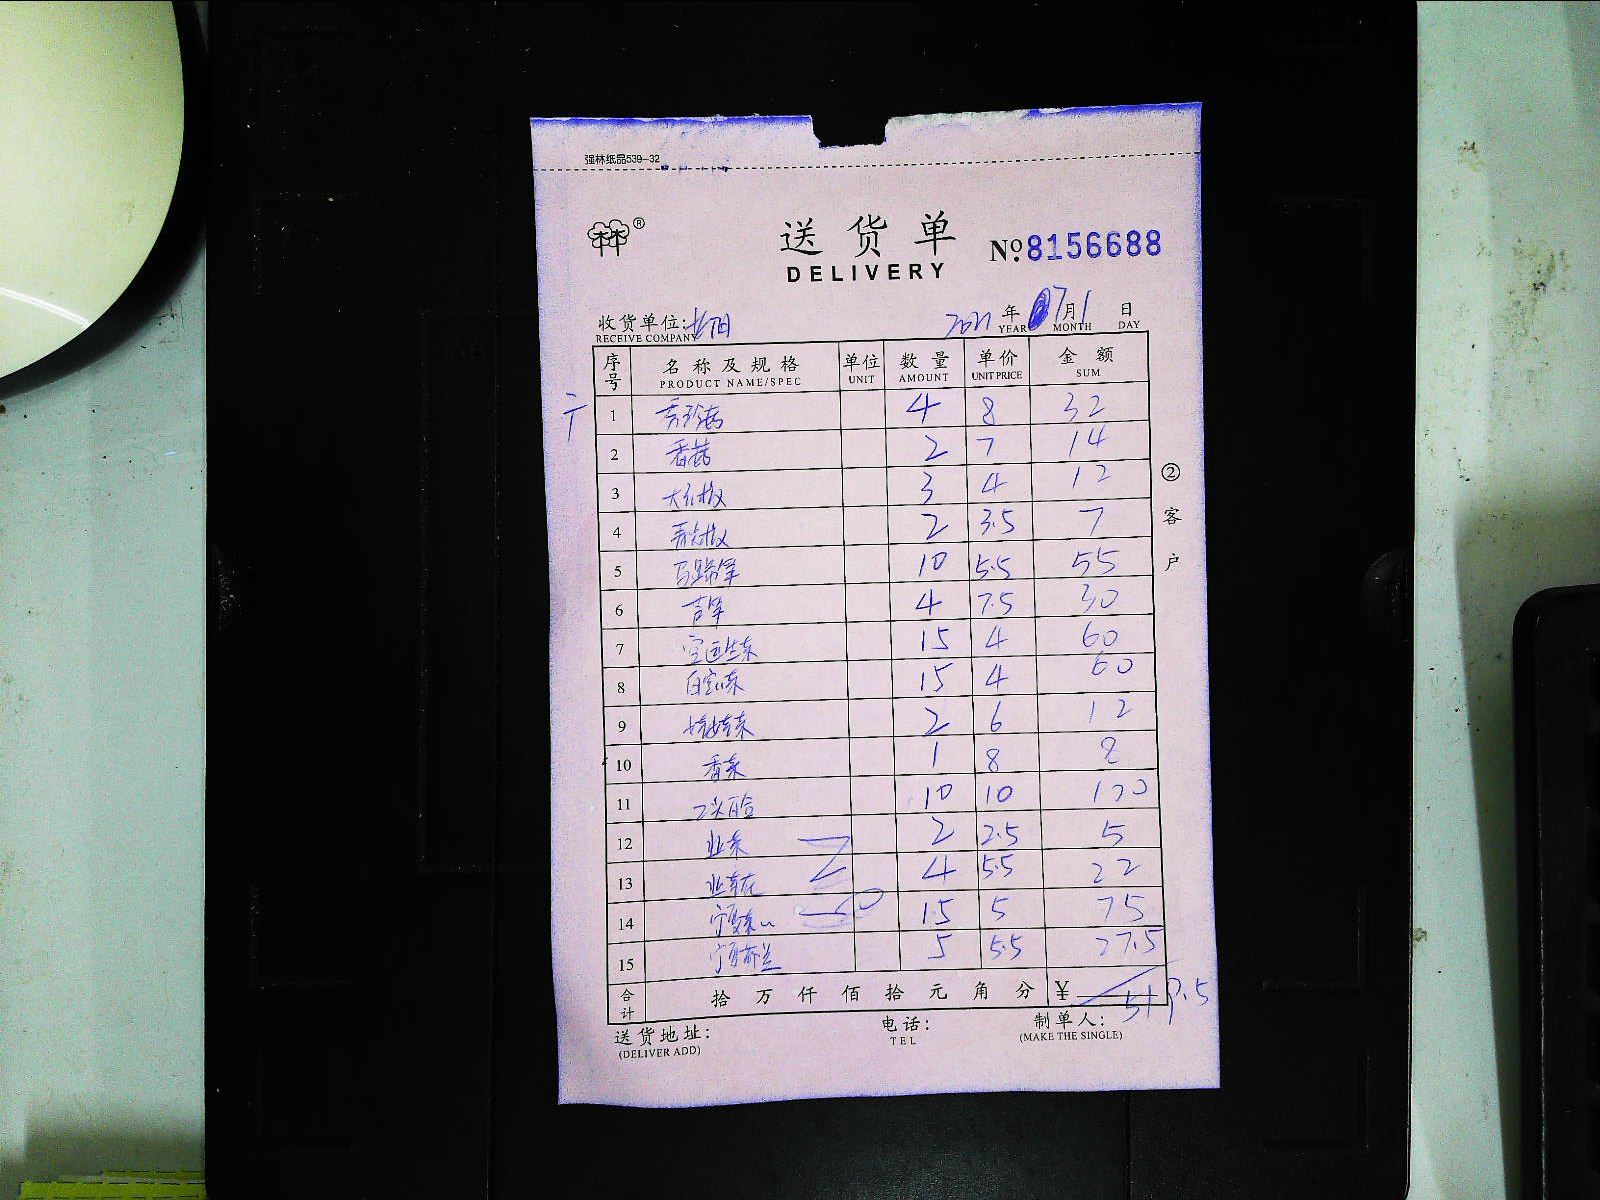 强林纸品539-32
林®
送货单 No.8156688
DELIVERY
收货单位: 2021年07月1日
RECEIVE COMPANY YEAR MONTH DAY
序号 名称及规格 单位 数量 单价 金额
PRODUCT NAME/SPEC UNIT AMOUNT UNIT PRICE SUM
1 秀珍菇 4 8 32
2 香菇 2 7 14
3 大红椒 3 4 12
4 青尖椒 2 3.5 7
5 马蹄笋 10 5.5 55
6 4 7.5 30
7 15 4 60
8 15 4 60
9 2 6 12
10 香菜 1 8 8
11 10 10 100
12 2 2.5 5
13 4 5.5 22
14 宁夏菜心 15 5 75
15 宁夏芥兰 5 5.5 27.5
合计 拾万仟佰拾元角分 ¥ 519.5
送货地址: 电话: 制单人:
(DELIVER ADD) TEL (MAKE THE SINGLE)
②客户